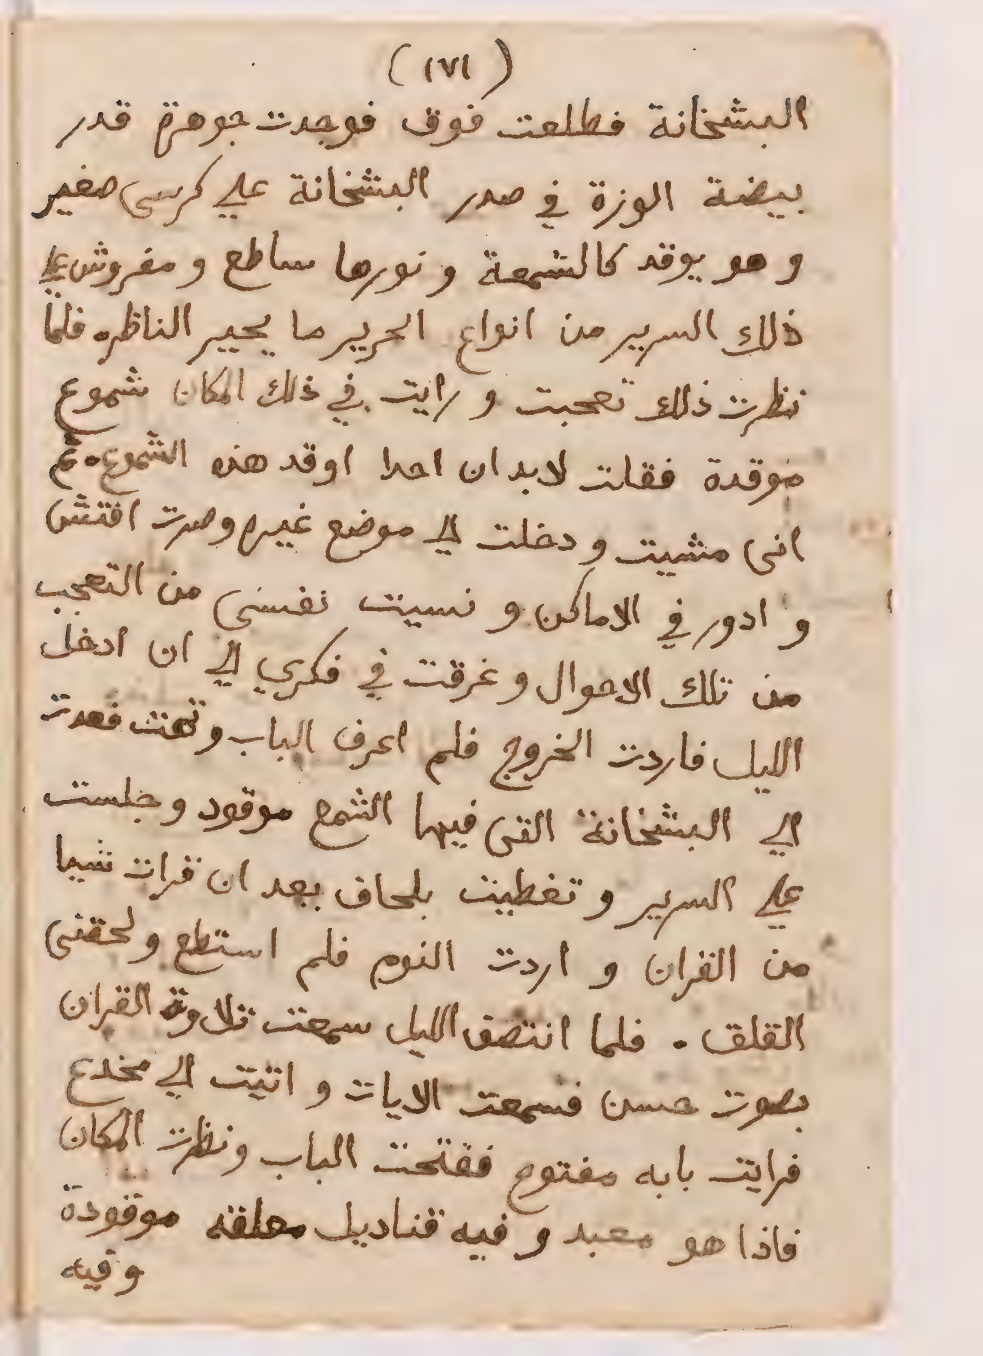 (١٧١)
البشخانة فطلعت فوق فوجدت جوهرة قدر
بيضة الوزة في صدر البشخانة علي كرسى صغير
و هو يوقد كالشمعة و نورها ساطع و مفروش علي
ذلك السرير من انواع الحرير ما يحير الناظر. فلما
نظرت ذلك تعجبت و رايت في ذلك المكان شموع
موقدة فقلت لابد ان احدا اوقد هذه الشموع. ثم
انى مشيت و دخلت الي موضع غيره وصرت افتش
و ادور في الاماكن و نسيت نفسى من التعجب
من تلك الاحوال و غرقت في فكري الي ان ادخل
الليل فاردت الخروج فلم اعرف الباب و تهت فعدت
الي البشخانة التى فيها الشمع موقود و جلست
علي السرير و تغطيت بلحاف بعد ان قرات شيا
من القران و اردت النوم فلم استطع و لحقنى
القلق . فلما انتصف الليل سمعت تلاوة القران
بصوت حسن فسمعت الايات و اتيت الي مخدع
فرايت بابه مفتوح ففتحت الباب و نظرت المكان
فاذا هو معبد و فيه قناديل معلقه موقودة
و فيه